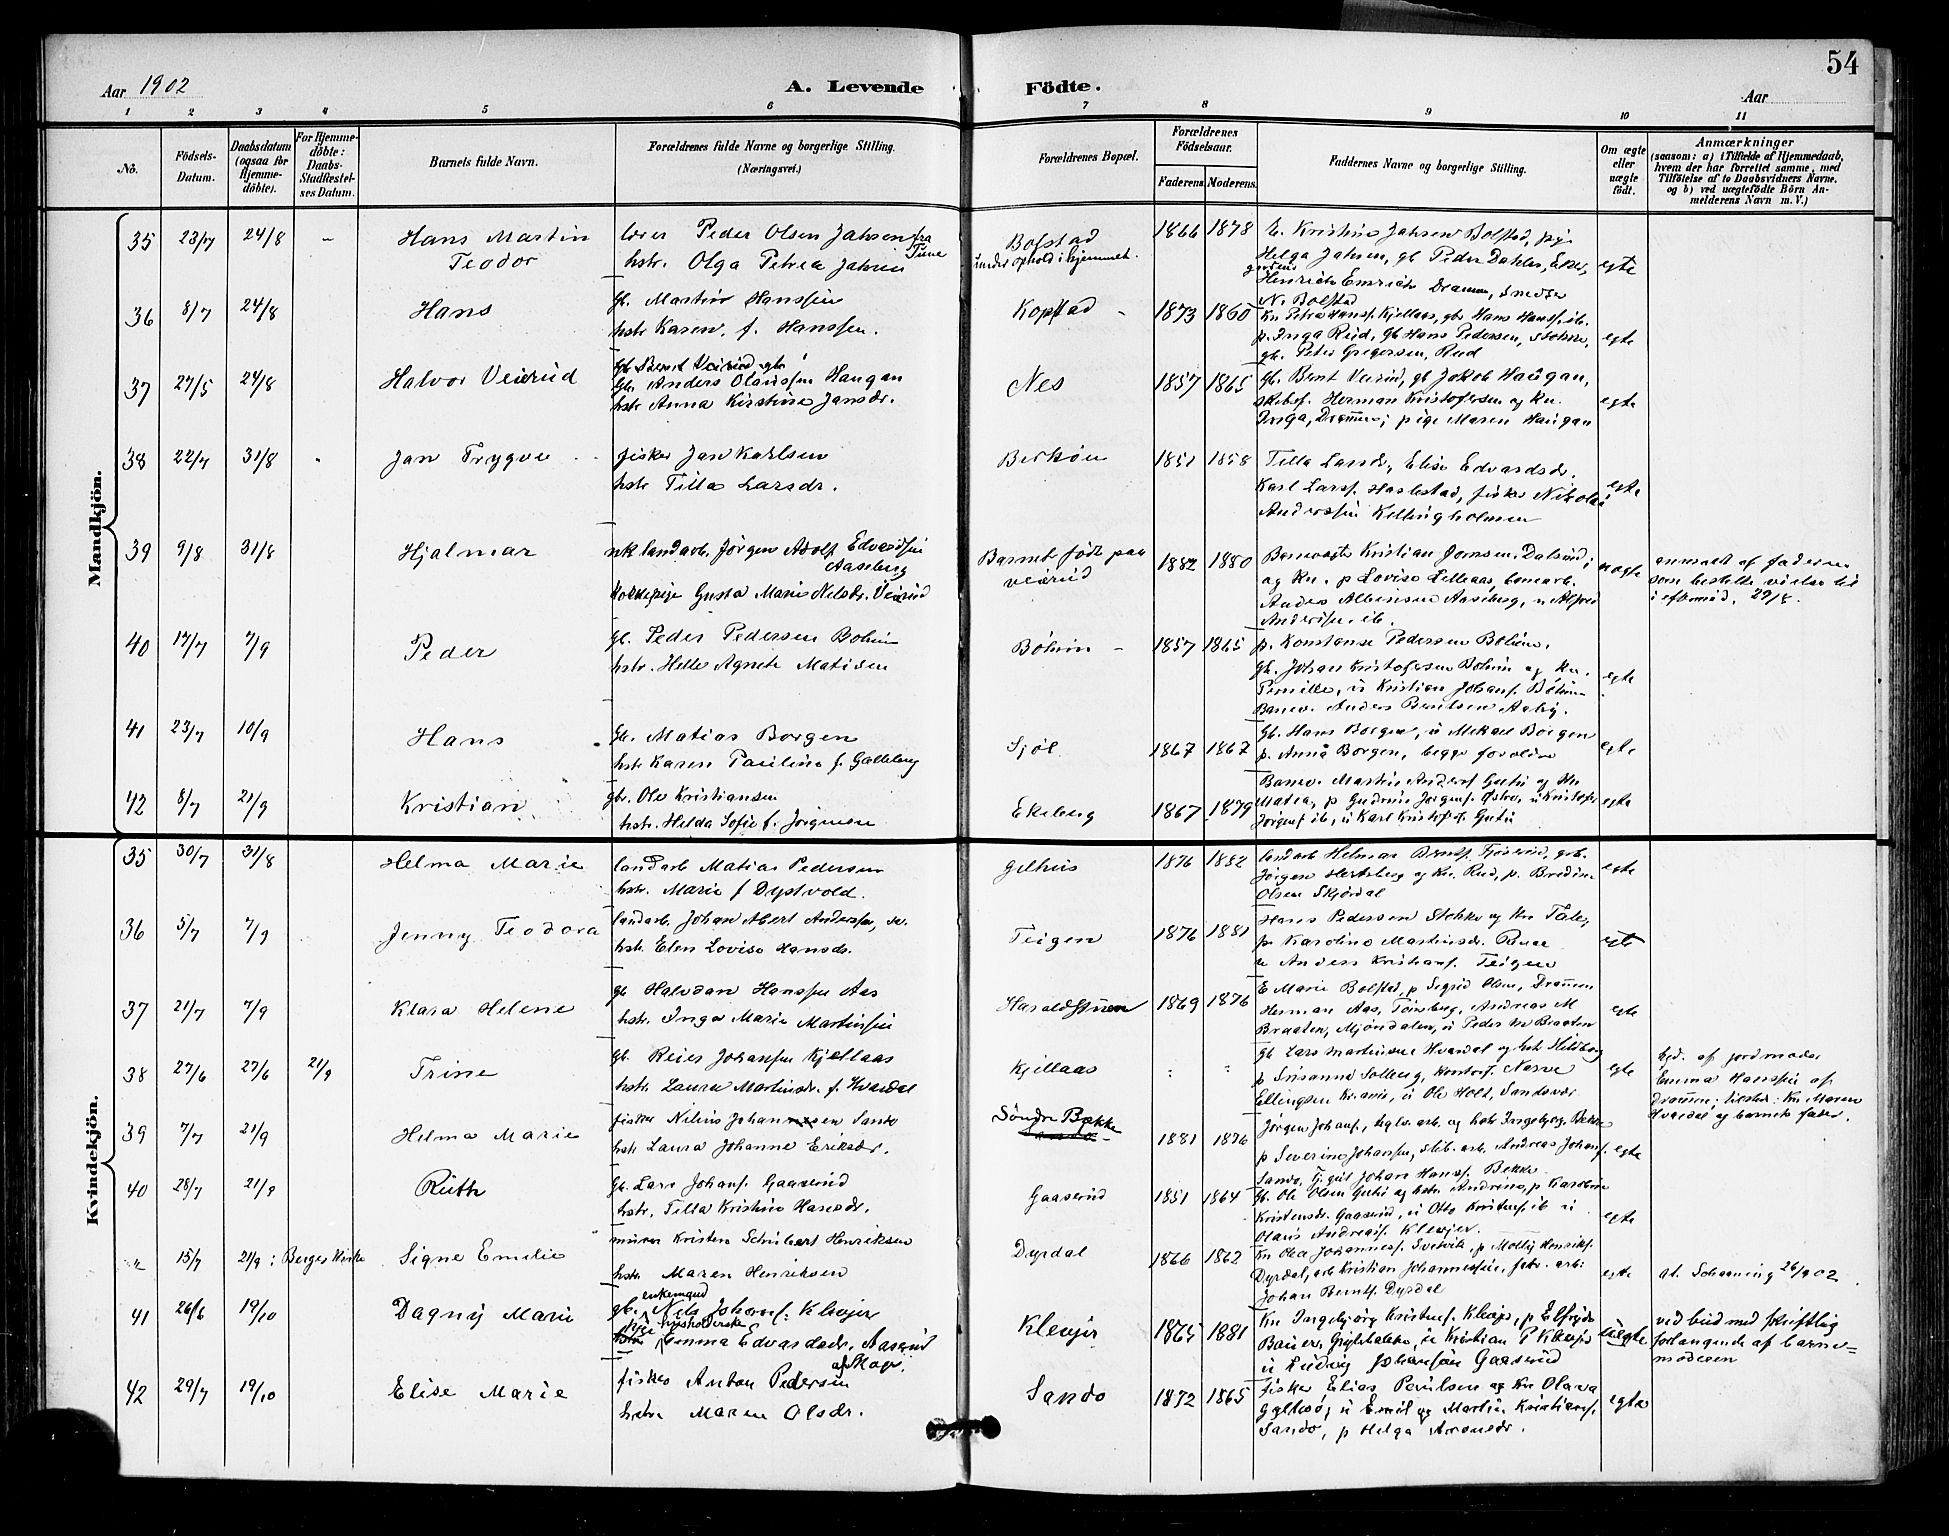 54
Aar 1902
A. Levende Födte.
Aar
1 2 3 4 5 6 7 8 9 10 11
No.
Födsels-Datum.
Daabsdatum (ogsaa for Hjemme-döbte).
For Hjemme-döbte: Daabs-Stadfæstel-ses Datum.
Barnets fulde Navn.
Forældrenes fulde Navne og borgerlige Stilling.
(Næringsvei.)
Forældrenes Bopæl.
Forældrenes Födselsaar.
Faderens. Moderens.
Faddernes Navne og borgerlige Stilling.
Om ægte eller uægte födt.
Anmærkninger
(saasom: a) i Tilfælde af Hjemmedaab,
hvem der har forrettet samme, med
Tilföielse af to Daabsvidners Navne.
og b) ved uægtefödte Börn An-
melderens Navn m. V.)
Mandkjön.
35 23/7 24/8 - Hans Martin Teodor
lærer Peder Olsen Jahsen fra Tune
hstr. Olga Petrea Jahsen
Bolstad
under ophold i hjemmet.
1866 1878
Helga Jahsen, gb Peder Dahler, Eker,
egte
36 8/7 24/8 Hans
gb. Martin Hanssen
hstr Karen, f. Hanssen.
Kopstad
1873 1860
N. Bolstad
p. Inga Rud, gb Hans Pedersen, Stokke,
gb. Peter Gregersen, Rud
egte
37 27/5 24/8 Halvor Veierud
gb. Anders Olaussen Haugan
hstr Anna Kirstine Jansdr.
Nes
1857 1865
gb. Bernt Veierud, gb Jakob Haugan,
Herman Kristofersen og Kn.
Inga, Drammen; pige Maren Haugan
egte
38 22/7 31/8 Jan Trygve
fisker Jan Karlsen
hstr Tilla Larsdr.
Berköen
1851 1858
Tilla Larsdr, Elise Edvardsdr.
Karl Larsf. Haslestad, fisker Nikolai
Anderssen Kellingholmen
egte
39 9/8 31/8 Hjalmar
nk landarb. Jörgen Adolf Edvardsen Aaseberg
Kokkepige Gusta Marie Nelsdr. Veierud
Barnet födt paa Veierud
1882 1880
Banevogter Kristian Jörnsen, Dalsrud;
og Kn. p Lovise Lilleaas, banearb.
Anders Albertsen Aaseberg, u Alfred
Andersen ib.
uægte
anmeldt af faderen
som bestilte vielse til
i efterm​id. 29/8.
40 17/7 7/9 Peder
gb. Peder Pedersen Bolum
hstr. Helle Agnete Matisen
Bölum
1857 1865
p. Konstanse Pedersen Bölum.
gb. Johan Kristofersen Bölum og kn.
Pernille, u Kristian Johansf. Bölum
Banev. Anders Berntsen Aasly.
egte
41 23/7 10/9 Hans
gb. Matias Borgen
hstr Karen Pauline f. Galleberg
Sjöl
1867 1867
Gb. Hans Borgen, u Mikael Borgen
p. Anna Borgen, begge forældre
egte
42 8/7 21/9 Kristian
gbr. Ole Kristiansen
hstr. Hilda Sofie f. Jörgensen
Ekeberg
1867 1879
Matea, p Gudrun Jörgensf. Östre, u Kristofer
Jörgensf ib, u Karl Kristofersf. Gutu
egte
Kvindekjön.
35 30/7 31/8 Helma Marie
landarb Matias Pedersen
hstr. Marie f Dystvold.
Gilhus
1876 1882
Jörgen Hertsberg og Kn. Rud, p. Bredine
Olsen Skjördal
egte
36 5/7 7/9 Jenny Teodora
landarb. Johan Albert Anderssen, sv.
hstr. Elen Lovise Hansdr.
Teigen
1876 1881
Hans Pedersen Stokke og kn Tale,
p. Karoline Martinsdr. Ruue
u Anders Kristiansf. Teigen
egte
37 21/7 7/9 Klara Helene
gb Halvdan Hanssen Aas
hstr. Inga Marie Martinsen
Haraldstuen
1869 1876
E Marie Bolstad, p Sigrid Olsen, Drammen
Herman Aas, Tönsberg, Andreas M
Braaten, Mjöndalen, u Peder M Braaten
egte
38 27/6 27/6 21/9 Trine
gb. Reier Johansen Kjellaas
hstr. Laura Martinsdr. f. Hvardal
Kjellaas
: :
Gb Lars Martinsen Hvardal og hstr Hildborg
p Susanne Solberg, Narve
Ellingsen Krams, u Ole Holt, Sandsvær
egte
Hjd. af jordmoder
Emma Hanssen af
Drammen: tilsted: Kn Maren
Hvardal og barnets fader.
39 7/7 21/9 Helma Marie
fisker Nilius Johannessen Sandö
hstr. Laura Johanne Eriksdr.
Söndre Bække
1881 1876
Jörgen Johansf, teglv. arb. og hstr Ingeborg Bekke
p Severine Johansen, slib. arb. Andreas Johansf.
Sandö, Johan Hansf. Bekke
egte
40 28/7 21/9 Ruth
Gb. Lars Johansf. Gaaserud
hstr. Tilla Kristine Hansdr.
Gaaserud
1851 1864
gb. Ole Olsen Gutu og hstr Andrine, p Karoline
Kristensdr. Gaaserud, u Otto Kristensf. ib u
Olaus Andreasf. Klevjer
egte
" 15/7 21/9: Berger Kirke Signe Emilie
murer Kristen Schubert Henriksen
hstr. Maren Henriksen
Dyrdal
1866 1862
Kn Ola Johannesf. Svelvik, p Molly Henriksf.
Dyrdal, arb Kristian Johannessen, fabr. arb:
Johan Berntsf. Dyrdal
egte
At. Schanning 26/9 02.
41 26/6 19/10 Dagny Marie
gb. enkemand Nils Johansf. Klevjer
pige husholderske Emma Edvardsdr. Aaserud
af Skoger.
Klevjer
1865 1881
Kn Ingeborg Kristensf. Klevjer, p Elfrida
Bauer, u Kristian P Klevjer
u Ludvig Johansen Gaaserud
uegte
ved bud med skriftlig
forlangende af barne=
moderen
42 29/7 19/10 Elise Marie
fisker Anton Pedersen
hstr Maren Olsdr.
Sandö
1872 1865
fisker Elias Paulsen og kn Olava
u Emil og Martin Kristiansf.
Sandö, p Helga Aronsdr.
egte